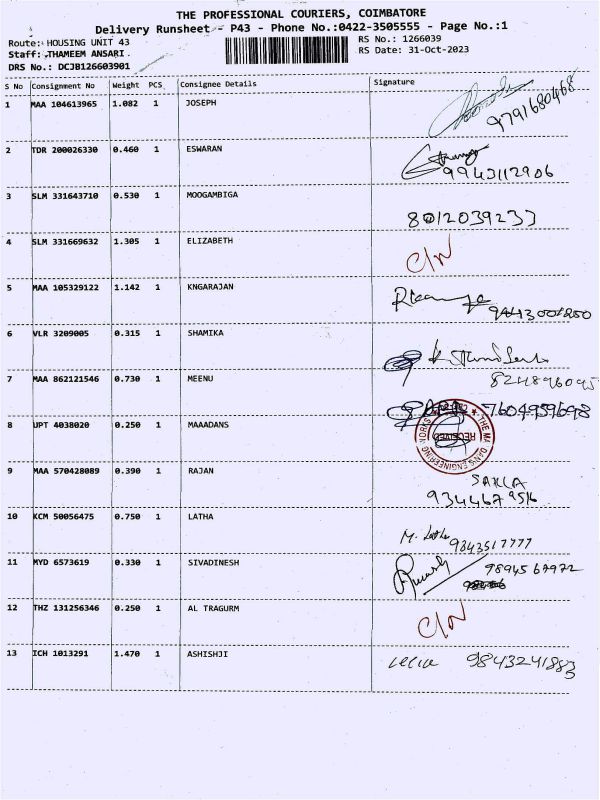 THE PROFESSIONAL COURIERS, COIMBATORE
Delivery Runsheet - P43 - Phone No.:0422-3505555 - Page No.:1
Route: HOUSING UNIT 43
RS No.: 1266039
Staff: THAMEEM ANSARI
RS Date: 31-Oct-2023
DRS No.: DCJB126603901
S No Consignment No Weight PCS Consignee Details Signature
1 MAA 104613965 1.082 1 JOSEPH 9791680468
2 TDR 200026330 0.460 1 ESWARAN 9943112906
3 SLM 331643710 0.530 1 MOOGAMBIGA 8012039233
4 SLM 331669632 1.305 1 ELIZABETH C/N
5 MAA 105329122 1.142 1 KNGARAJAN
6 VLR 3209005 0.315 1 SHAMIKA
7 MAA 862121546 0.730 1 MEENU 8248960957
8 UPT 4038020 0.250 1 MAAADANS 7604959698
RECEIVED
9 MAA 570428089 0.390 1 RAJAN
9344679516
10 KCM 50056475 0.750 1 LATHA M. Latha 9843517777
11 MYD 6573619 0.330 1 SIVADINESH 9894567972
12 THZ 131256346 0.250 1 AL TRAGURM C/N
13 ICH 1013291 1.470 1 ASHISHJI 9843241883